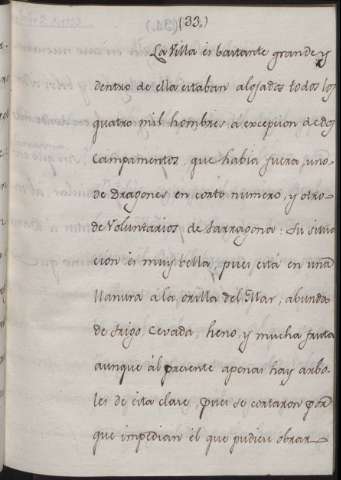 (33.)
La Villa és bastante grande y
dentro de ella estaban alojados todos los
quatro mil hombres á excepcion de dos
Campamentos, que habia fuera, uno
de Dragones en corto numero, y otro
de Voluntarios de Sarragona: Su situa
cion és muy bella, pues está en una
llanura á la orilla del Mar, abunda
de trigo, Cevada, heno, y mucha fruta
aunque ál preciente apenas hay arbo
les de ésta clase, pues se cortaron por
que impedian él que pudiese obrar